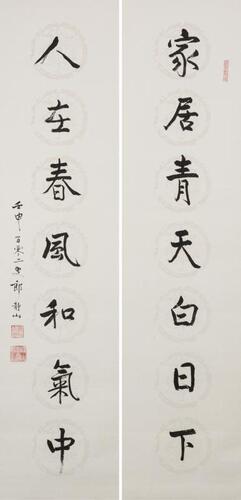 家居青天白日下
人在春風和氣中
壬申百零二叟郎靜山